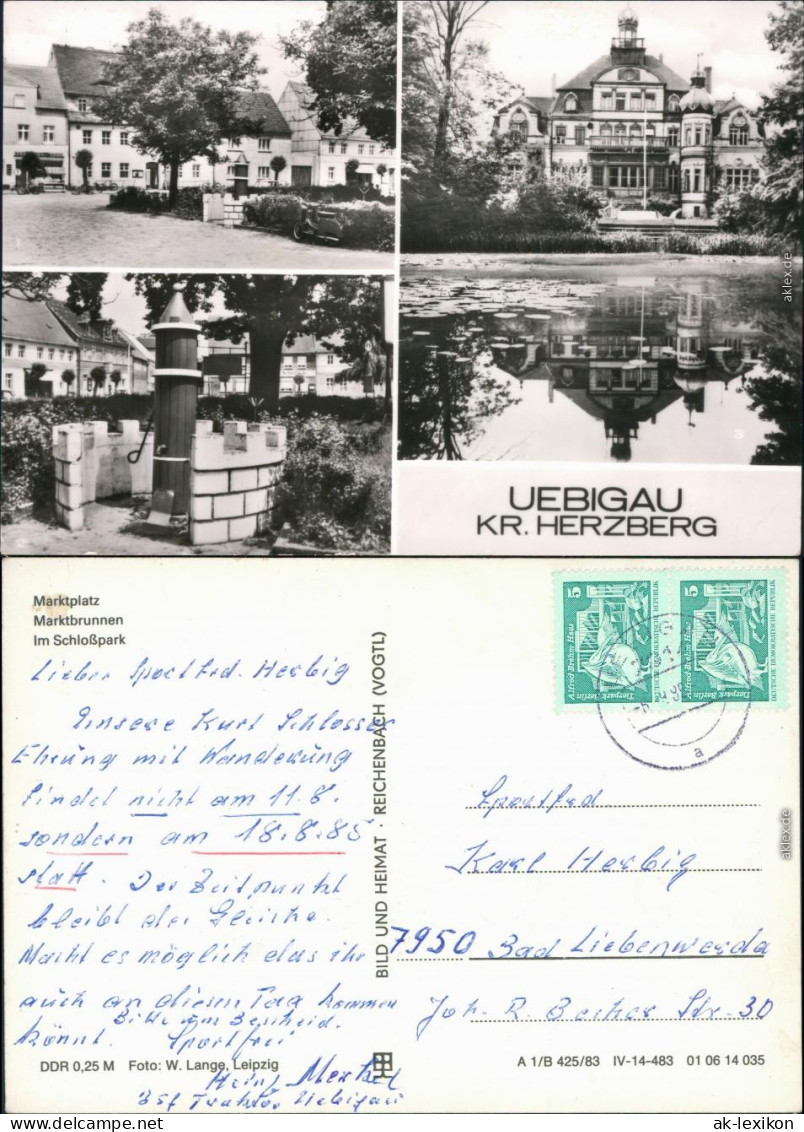 UEBIGAU
KR. HERZBERG
aklex.de
Marktplatz
Marktbrunnen
Im Schloßpark
Lieber Sportfrd. Herbig
Unsere Kurt Schlosser
Ehrung mit Wanderung
findet nicht am 11.8.
sondern am 18.8.85
statt. Der Zeitpunkt
bleibt der Gleiche.
Macht es möglich das ihr
auch an diesem Tag kommen
könnt. Bitte um Bescheid.
Sportfrei
Heinz Merkel
BSG Traktor Uebigau
DDR 0,25 M Foto: W. Lange, Leipzig
BILD UND HEIMAT · REICHENBACH (VOGTL)
5
Alfred-Brehm-Haus
Tierpark Berlin
DEUTSCHE DEMOKRATISCHE REPUBLIK
5
Alfred-Brehm-Haus
Tierpark Berlin
DEUTSCHE DEMOKRATISCHE REPUBLIK
a
Sportfrd.
Karl Herbig
7950 Bad Liebenwerda
Joh. R. Becher Str. 30
A 1/B 425/83 IV-14-483 01 06 14 035
aklex.de
www.ak-lexikon.de